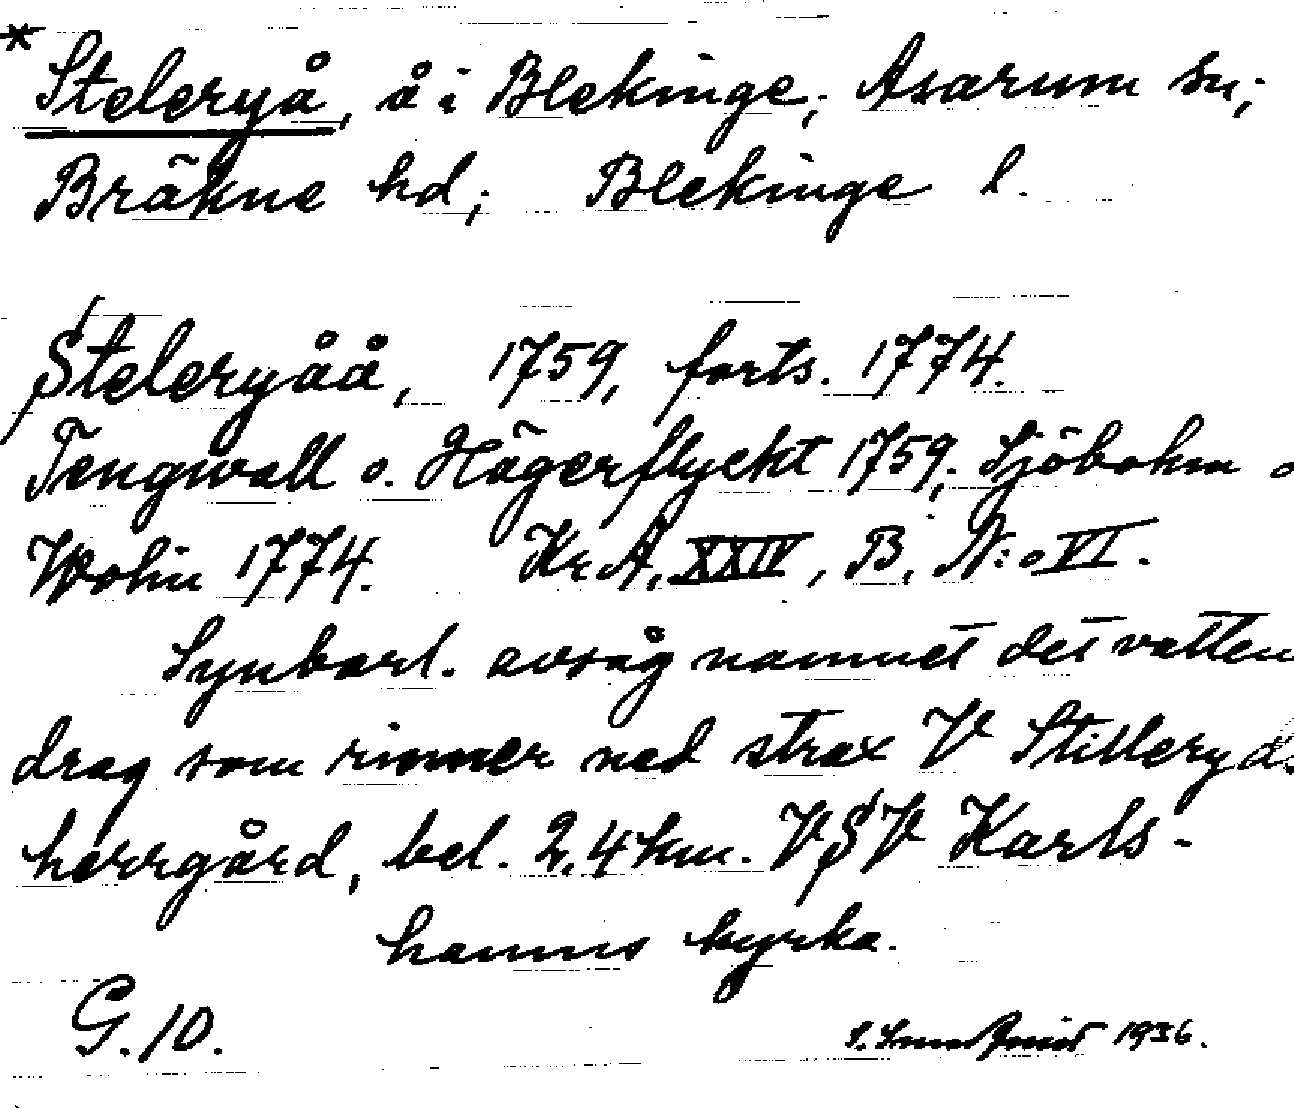 * Steleryå, å i Blekinge; Asarum sn;
Bräkne hd; Blekinge l.
Steleryåå, 1759, forts. 1774.
Tengwall o. Hägerflyckt 1759; Sjöbohm o
Wohin 1774. Kr.A. XXIV, B, N:o VI.
Synbarl. avsåg namnet det vatten
drag som rinner ned strax V Stilleryds
herrgård, bel. 2,4 km. VSV Karls-
hamns kyrka.
G. 10.
1936.